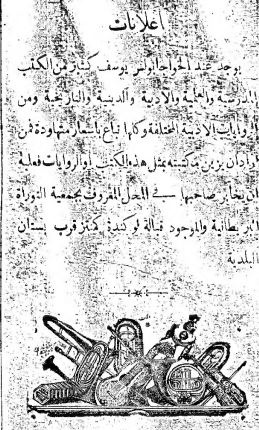 اعلانات
يوجد عند الخواجا بولس يوسف كثير من الكتب
المدرسية والعلمية والادبية والدينية والتاريخية ومن
الروايات الادبية المختلفة وكلها تباع باسعار متهاودة فمن
اراد ان يزين مكتبته بمثل هذه الكتب او الروايات فعليه
ان يخابر صاحبها في المحل المعروف بجمعية التوراة
البريطانية والموجود قبالة لوكندة قرب بستان
البلدية